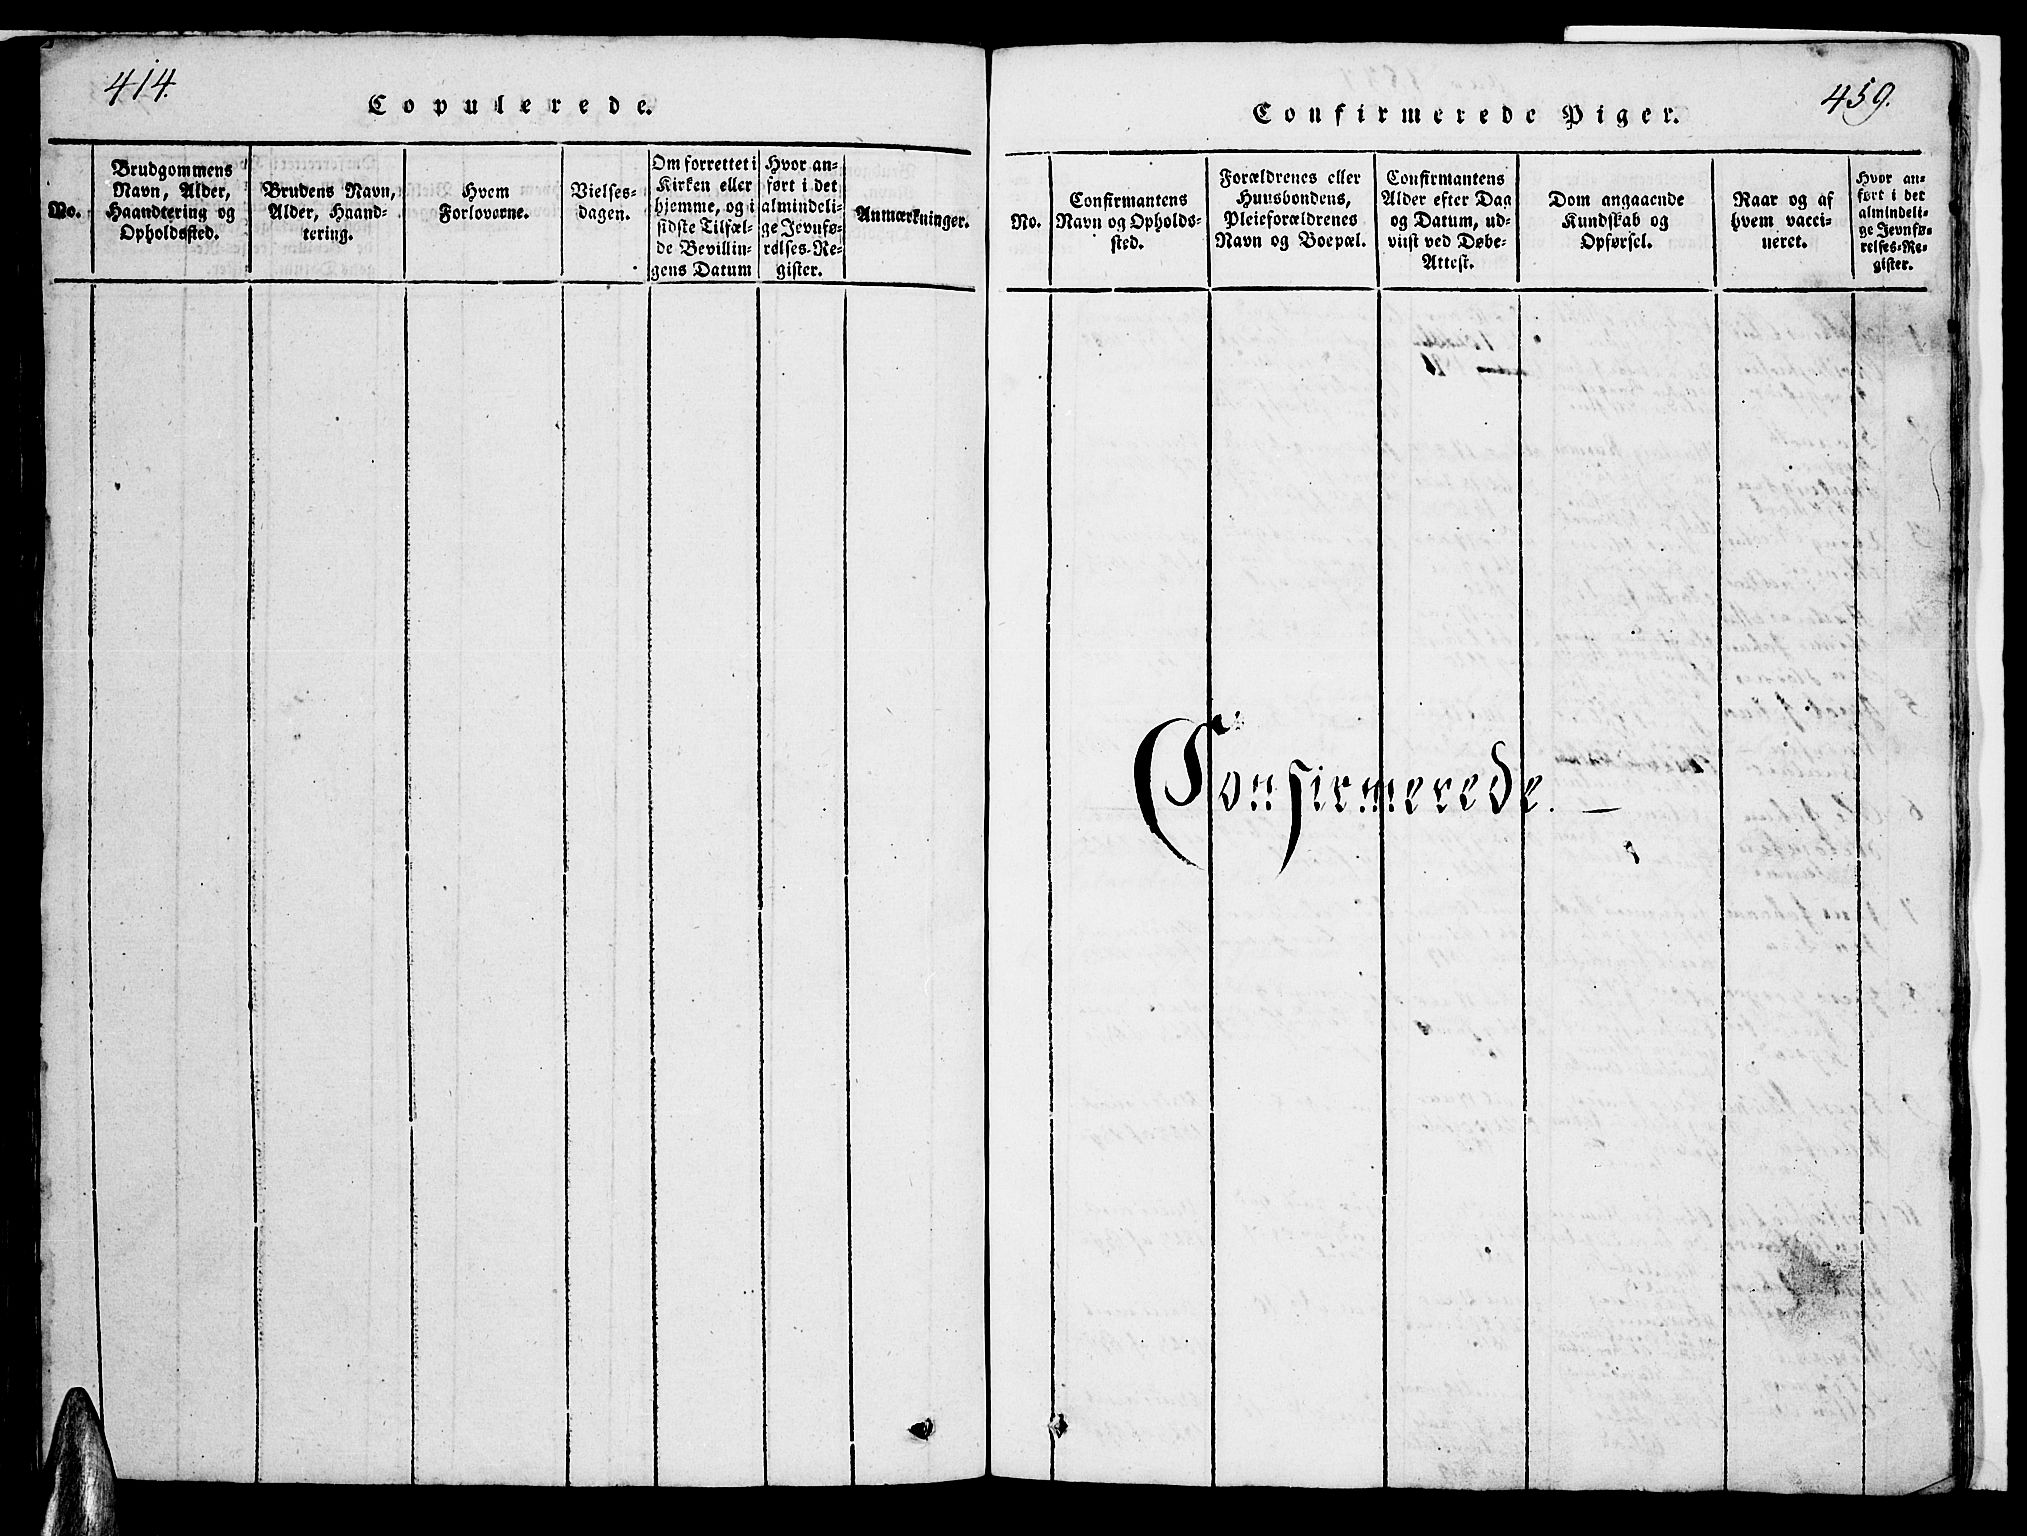 414.
Copulerede.
No.
Brudgommens
Navn, Alder,
Haandtering og
Opholdssted.
Brudens Navn,
Alder, Haand-
tering.
Hvem
Forloverne.
Vielses-
dagen.
Om forrettet i
Kirken eller
hjemme, og i
sidste Tilfæl-
de Bevillin-
gens Datum
Hvor an-
ført i det
almindeli-
ge Jevnfø-
relses-Re-
gister.
Anmærkninger.
459.
Confirmerede Piger.
No.
Confirmantens
Navn og Opholds-
sted.
Forældrenes eller
Huusbondens,
Pleieforældrenes
Navn og Boepæl.
Confirmantens
Alder efter Dag
og Datum, ud-
viist ved Døbe-
Attest.
Dom angaaende
Kundskab og
Opførsel.
Naar og af
hvem vacci-
neret.
Hvor an-
ført i det
almindeli-
ge Jevnfø-
relses-Re-
gister.
Confirmerede. —